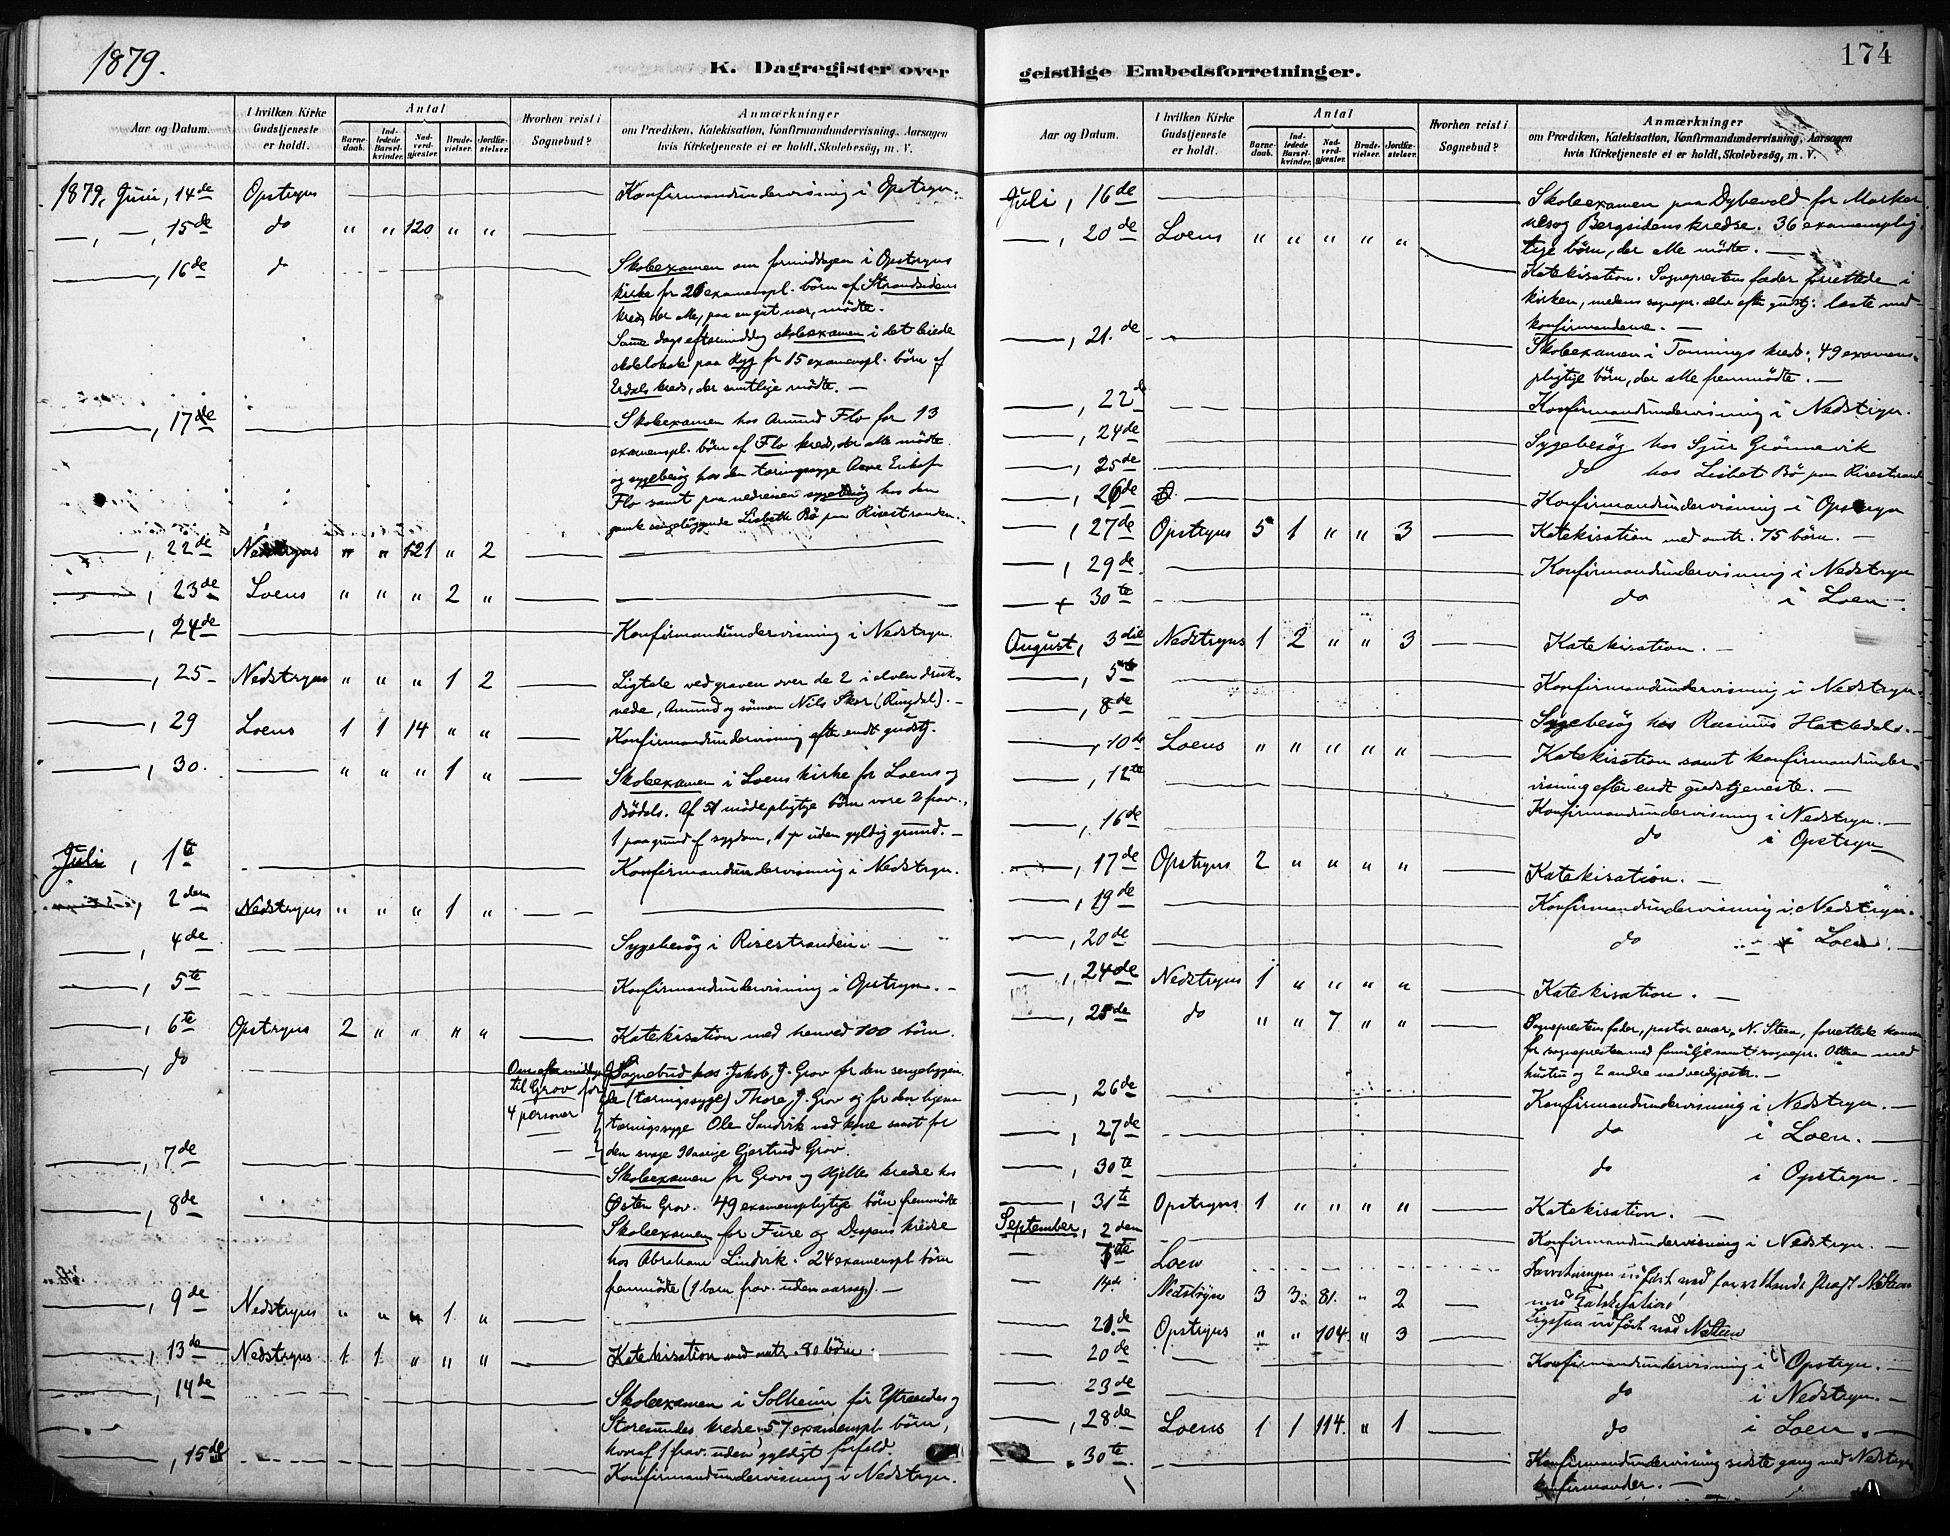 1879.
K. Dagregister over
Aar og Datum.
I hvilken Kirke Gudstjeneste er holdt.
Antal
Barnedaab.
Indledede Barselkvinder.
Nadverdgjester.
Brudevielser.
Jordfæstelser.
Hvorhen reist i Sognebud?
Anmærkninger
om Prædiken, Katekisation, Konfirmandundervisning, Aarsagen
hvis Kirketjeneste ei er holdt, Skolebesøg, m. V.
1879, Juni, 14de Opstryns Konfirmandundervisning i Opstryn.
—, —, 15de do " " 120 " "
—, 16de do Skoleexamen om formiddagen i Opstryns
kirke for 26 examenspl. børn af Strandsidens
kreds, der alle, paa en git nær, mødte.
Samme dags eftermiddag skoleexamen i det leiede
skolelokale paa Ryg for 15 examenspl. børn af
Erdals kreds, der samtlige mødte. —
—, 17de Skoleexamen hos Amund Flo for 13
examenspl. børn af Flo kreds, der alle mødte
og sygebesøg hos den tæringssyge Anne Eriksd.
Flo samt paa nedreisen sygebesøg hos den
Lisbeth Bø paa Risestranden.
—, 22de Nedstryns " " 121 " 2
—, 23de Loens " " " 2 "
—, 24de Konfirmandundervisning i Nedstryn.
—, 25 Nedstryns " " " 1 2 Ligtale ved graven over de 2 i elven druk-
nede, Amund og sønnen Nils Skor (Ringdal). —
—, 29 Loens 1 1 14 " " Konfirmandundervisning efter endt gudstj.
—, 30. — " " " 1 " Skoleexamen i Loens kirke for Loens og
Bødals. Af 51 mødepligtige børn vore 2 frav.,
1 paa grund af sygdom, 1 uden gyldig grund. —
Juli, 1te Konfirmandundervisning i Nedstryn.
2den Nedstryns " " " 1 "
—, 4de Sygebesøg i Risestranden. —
—, 5te Konfirmandundervisning i Opstryn. —
—, 6te Opstryns 2 " " " " Katekisation med henved 100 børn.
—, do Om eftermiddag
til Grov for
4 personer
Sognebud hos Jakob J. Grov for den sengeliggen-
de (tæringssyge) Thore J. Grov og for den
tæringssyge Ole Sandvik med kone samt for
den svage 90aarige Gjertrud Grov.
—, 7de Skoleexamen for Grovs og Hjelle kredse hos
Østen Grov. 49 examenspligtige børn fremmødte
—, 8de Skoleexamen for Fure og Dispens kredse
hos Abraham Lindvik. 24 examenspl børn
fremmødte (1 barn frav. uden aarsag). —
—, 9de Nedstryns " " " 1 "
—, 13de Nedstryns 1 1 " " " Katekisation med omtr. 80 børn.
—, 14de Skoleexamen i Solheim for Ytreeides og
Storesundes kredse. 57 examenspl. børn,
hvoraf 1 frav. uden gyldigt forfald.
—, 15de Konfirmandundervisning i Nedstryn.
174
geistlige Embedsforretninger.
Aar og Datum.
I hvilken Kirke Gudstjeneste er holdt.
Antal
Barnedaab.
Indledede Barselkvinder.
Nadverdgjester.
Brudevielser.
Jordfæstelser.
Hvorhen reist i Sognebud?
Anmærkninger
om Prædiken, Katekisation, Konfirmandundervisning, Aarsagen
hvis Kirketjeneste ei er holdt, Skolebesøg, m. V.
Juli, 16de Skoleexamen paa Dybevold for Marker
og Bergsidens kredse. 36 examensplig-
tige børn, der alle mødte. —
—, 20de Loens " " " " " Katekisation. Sogneprestens fader forrettede i
kirken, medens sognepr. selv efter gudstj: læste med
konfirmanderne. —
—, 21.de Skoleexamen i Tonnings kreds; 49 examens-
pligtige børn, der alle fremmødte. —
—, 22de Konfirmandundervisning i Nedstryn.
—, 24de Sygebesøg hos Sjur Grønnevik
—, 25de do hos Lisbet Bø paa Risestrand
—, 26de Konfirmandundervisning i Opstryn
—, 27de Opstryns 5 1 " " 3 Katekisation med omtr. 75 børn. —
—, 29de Konfirmandundervisning i Nedstryn
— 30te do i Loen.
August, 3die Nedstryns 1 2 " " 3 Katekisation. —
—, 5te Konfirmandundervisning i Nedstryn.
—, 8de Sygebesøg hos Rasmus Hatledals. —
—, 10de Loens " " " " " Katekisation samt konfirmandunder-
visning efter endt gudstjeneste. —
—, 12te Konfirmandundervisning i Nedstryn. —
—, 16de do i Opstryn
—, 17de Opstryns 2 " " " " Katekisation. —
—, 19de Konfirmandundervisning i Nedstryn.
—, 20de do i Loen. —
—, 24de Nedstryns 1 " " " " Katekisation. —
—, 25de do " " 7 " " Sogneprestens fader, pastor emer. N. Steen, forrettede
for sognepresten med familje samt sognepr. Ottesen med
hustru og 2 andre nadverdgjester. —
—, 26de Konfirmandundervisning i Nedstryn. —
—, 27de do i Loen. —
—, 30te do i Opstryn.
—, 31te Opstryns 1 " " " " Katekisation. —
September, 2den Konfirmandundervisning i Nedstryn. —
— Loen
14de Nedstryn 3 3 81. " 2
med Katekisation
— 21.de Opstryns " " 104. " 3
— 20de Konfirmandundervisning i Opstryn. —
— 23de do i Nedstryn. —
—, 28de Loens 1 1 114. " 1 do i Loen. —
30te Konfirmandundervisning sidste gang med Nedstryns
konfirmander. —